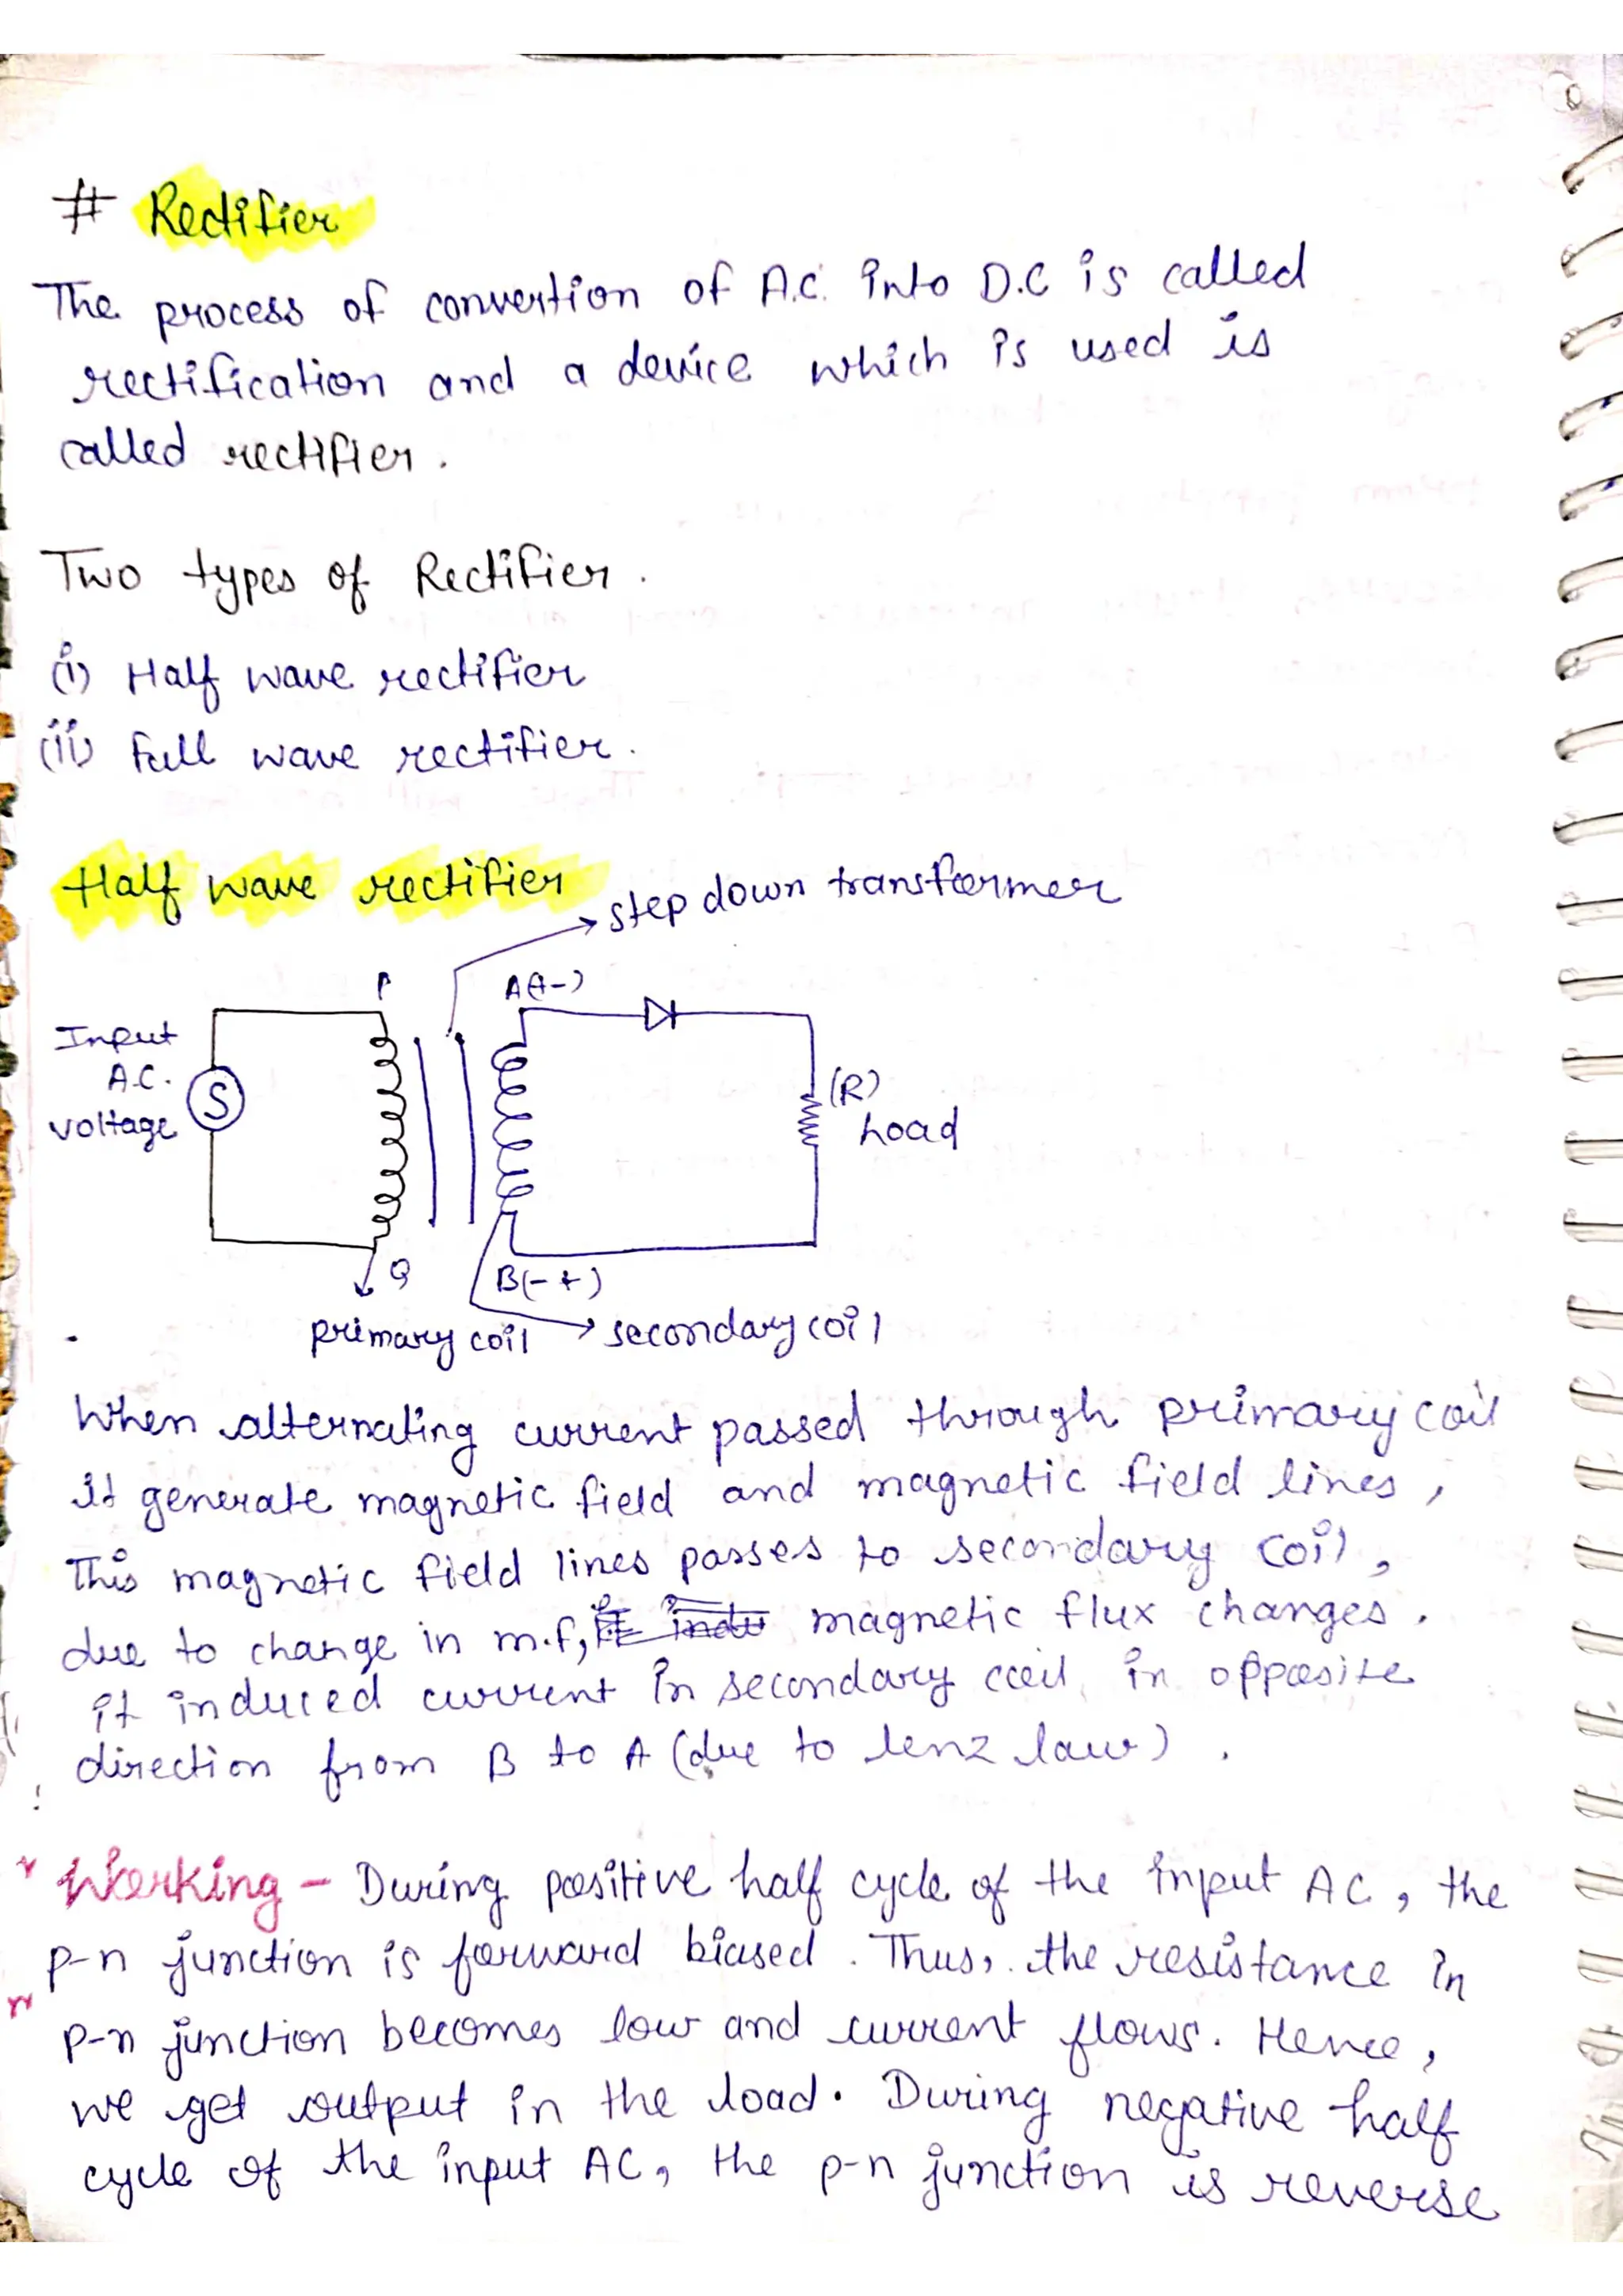 # Rectifier
The process of convertion of A.C. into D.C is called
rectification and a device which is used is
called rectifier.
Two types of Rectifier.
(i) Half wave rectifier
(ii) Full wave rectifier.
Half wave rectifier
step down transformer
P
A(+-)
Input
A.C.
voltage
S
(R)
Load
Q
B(-+)
primary coil
secondary coil
When alternating current passed through primary coil
it generate magnetic field and magnetic field lines,
This magnetic field lines passes to secondary coil,
due to change in m.f, magnetic flux changes.
it induced current in secondary coil in opposite
direction from B to A (due to lenz law).
Working - During positive half cycle of the input AC, the
p-n junction is forward biased. Thus, the resistance in
p-n junction becomes low and current flows. Hence,
we get output in the load. During negative half
cycle of the input AC, the p-n junction is reverse